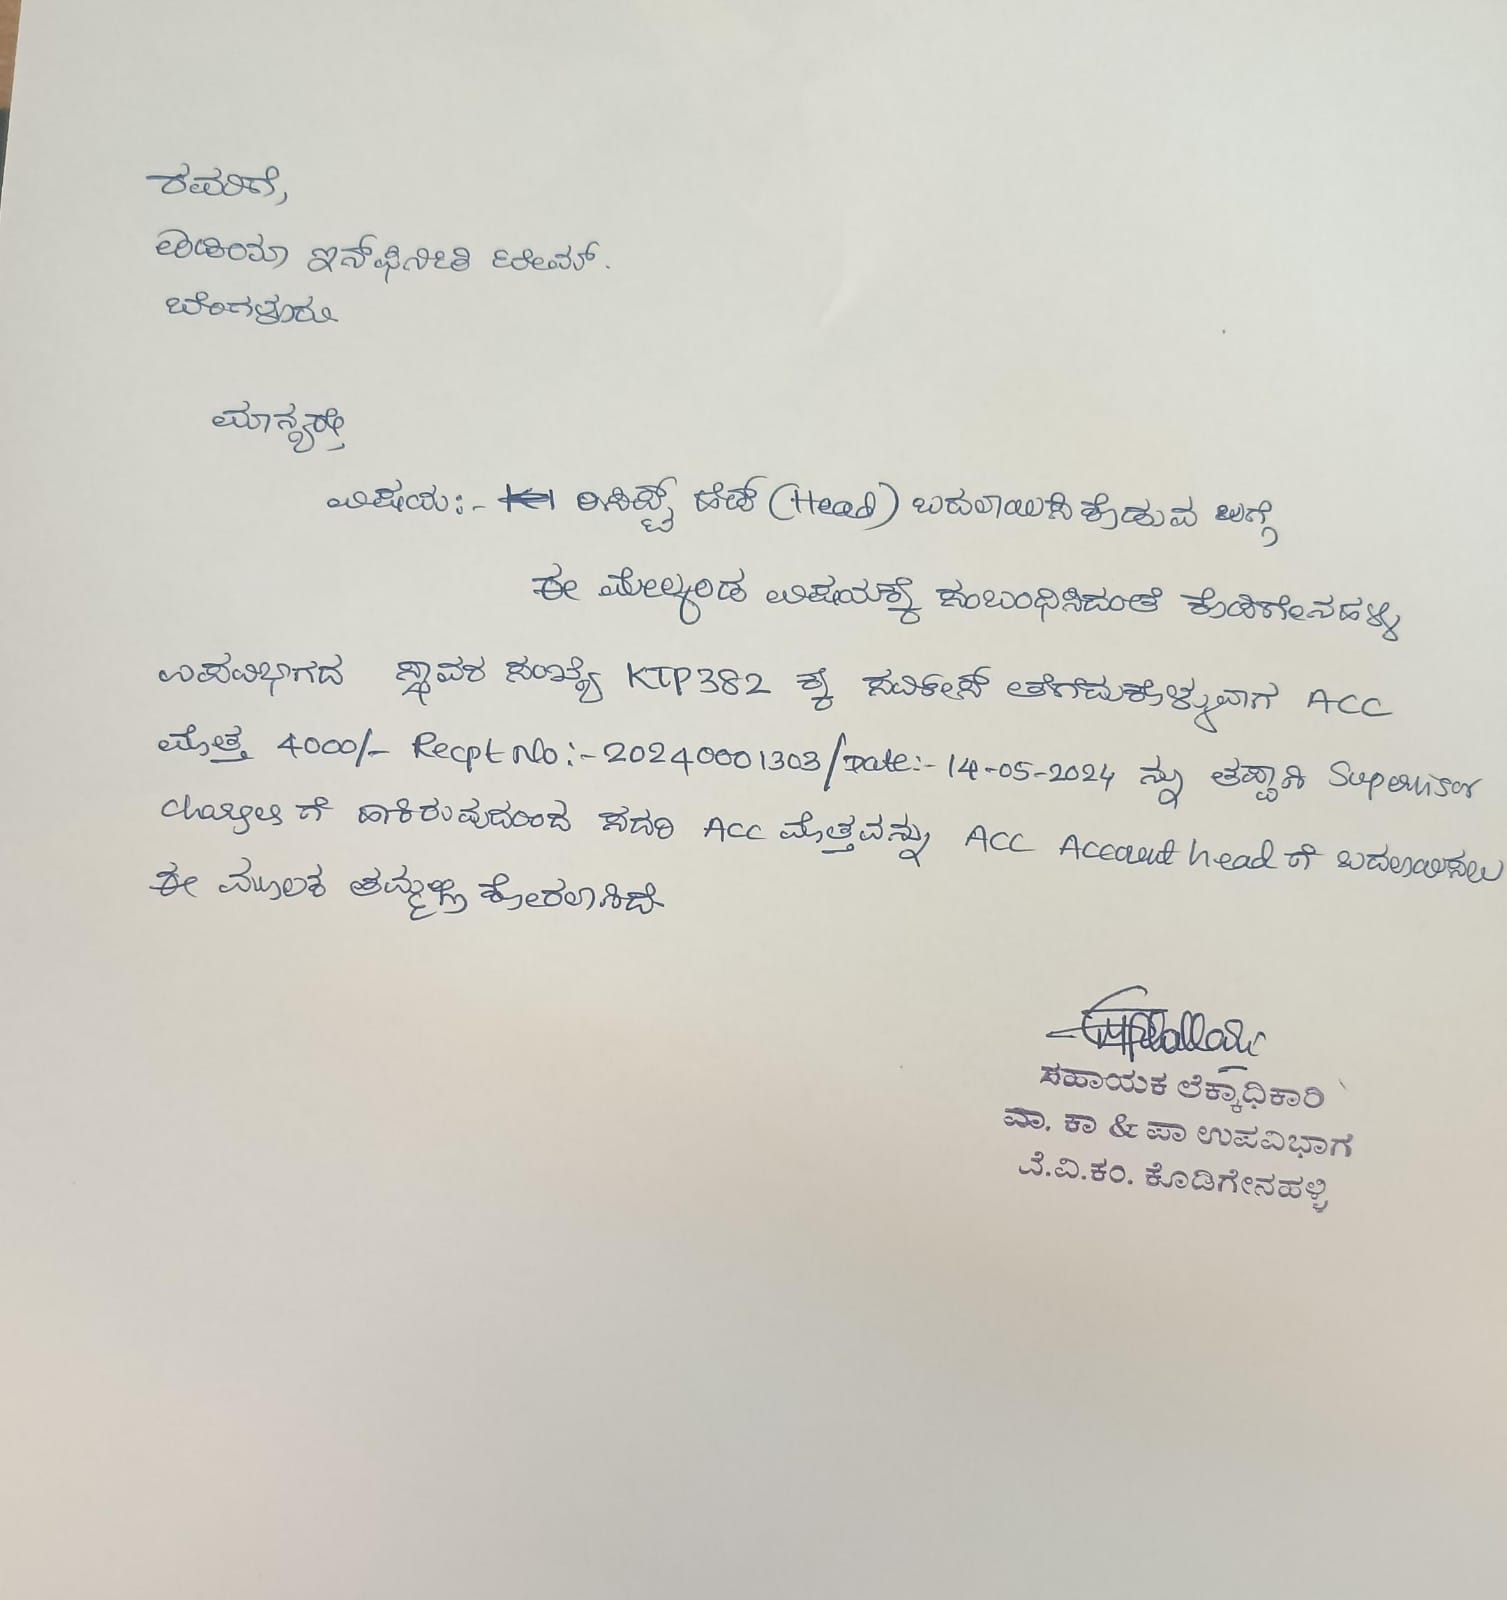 ರವರಿಗೆ,
ಐಡಿಯಾ ಇನ್‌ಫಿನೀತಿ ಟೀಮ್.
ಬೆಂಗಳೂರು
ಮಾನ್ಯರೇ
ವಿಷಯ:- ರಿಸಿಪ್ಟ್ ಹೆಡ್ (Head) ಬದಲಾಯಿಸಿ ಕೊಡುವ ಬಗ್ಗೆ
ಈ ಮೇಲ್ಕಂಡ ವಿಷಯಕ್ಕೆ ಸಂಬಂಧಿಸಿದಂತೆ ಕೊಡಿಗೇನಹಳ್ಳಿ
ಉಪವಿಭಾಗದ ಸ್ಥಾವರ ಸಂಖ್ಯೆ KTP382 ಕ್ಕೆ ಸರ್ವಿಸ್ ತೆಗೆದುಕೊಳ್ಳುವಾಗ ACC
ಮೊತ್ತ 4000/- Recpt No:-20240001303/Date:- 14-05-2024 ನ್ನು ತಪ್ಪಾಗಿ Supervisor
ಗೆ ಹಾಕಿರುವುದರಿಂದ ಸದರಿ ACC ಮೊತ್ತವನ್ನು ACC Account head ಗೆ ಬದಲಾಯಿಸಲು
ಈ ಮೂಲಕ ತಮ್ಮಲ್ಲಿ ಕೋರಲಾಗಿದೆ
ಸಹಾಯಕ ಲೆಕ್ಕಾಧಿಕಾರಿ
ವಾ. ಕಾ & ಪಾ ಉಪವಿಭಾಗ
ಬೆ.ವಿ.ಕಂ. ಕೊಡಿಗೇನಹಳ್ಳಿ